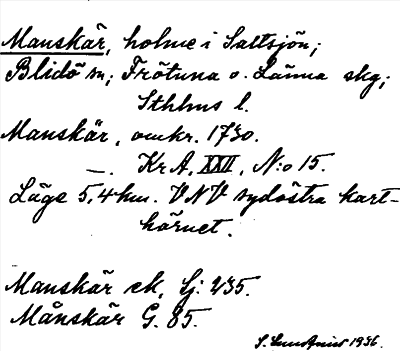 Manskär, holme i Saltsjön;
Blidö sn; Frötuna o. Länna skg;
Sthlms l.
Manskär, omkr. 1730.
—. Kr A, XXII, N:o 15.
Läge 5,4 km. VNV sydöstra kart-
hörnet.
Manskär ek, Sj: 235.
Månskär G. 85.
1936.